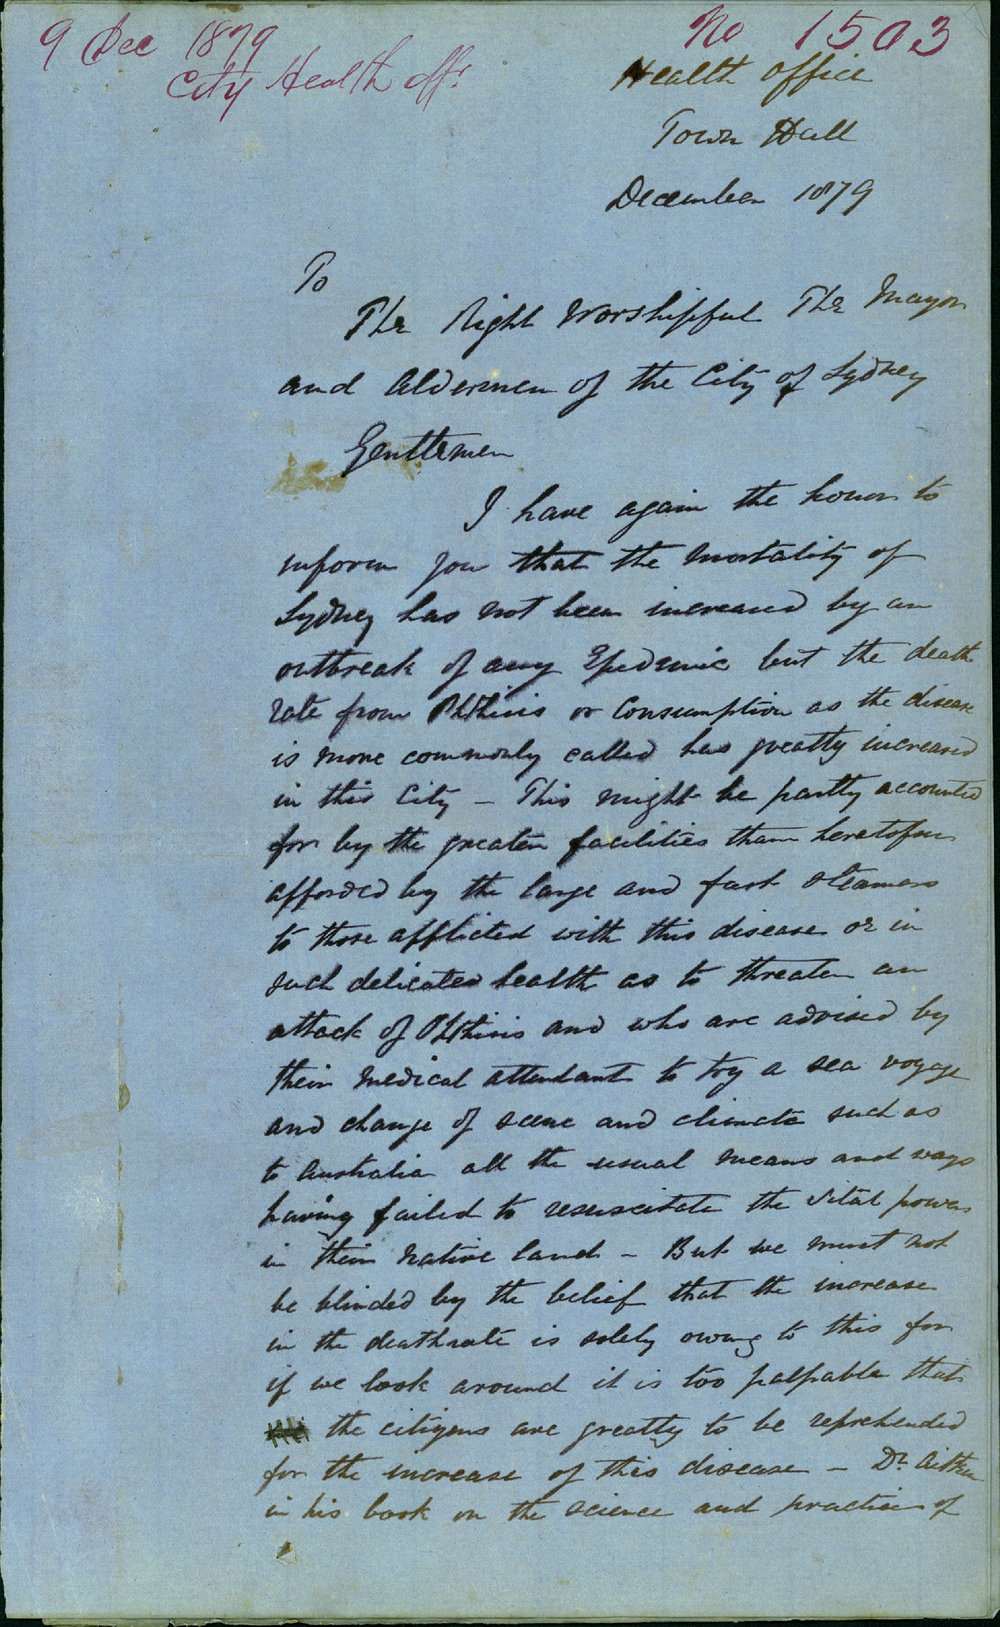 9 Dec 1879
No 1503
City Health Offr
Health Office
Town Hall
December 1879
To
The Right Worshipful The Mayor
and Aldermen of the City of Sydney
Gentlemen
I have again the honor to
inform you that the mortality of
Sydney has not been increased by an
outbreak of any Epidemic but the death
rate from Phthisis or Consumption as the disease
is more commonly called has greatly increased
in this City – This might be partly accounted
for by the greater facilities than heretofore
afforded by the large and fast steamers
to those afflicted with this disease or in
such delicate health as to threaten an
attack of Phthisis and who are advised by
their medical attendant to try a sea voyage
and change of scene and climate such as
to Australia all the usual means and ways
having failed to resuscitate the vital powers
in their native land – But we must not
be blinded by the belief that the increase
in the deathrate is solely owing to this for
if we look around it is too palpable that
the citizens are greatly to be reprehended
for the increase of this disease – Dr Aitken
in his book on the science and practice of